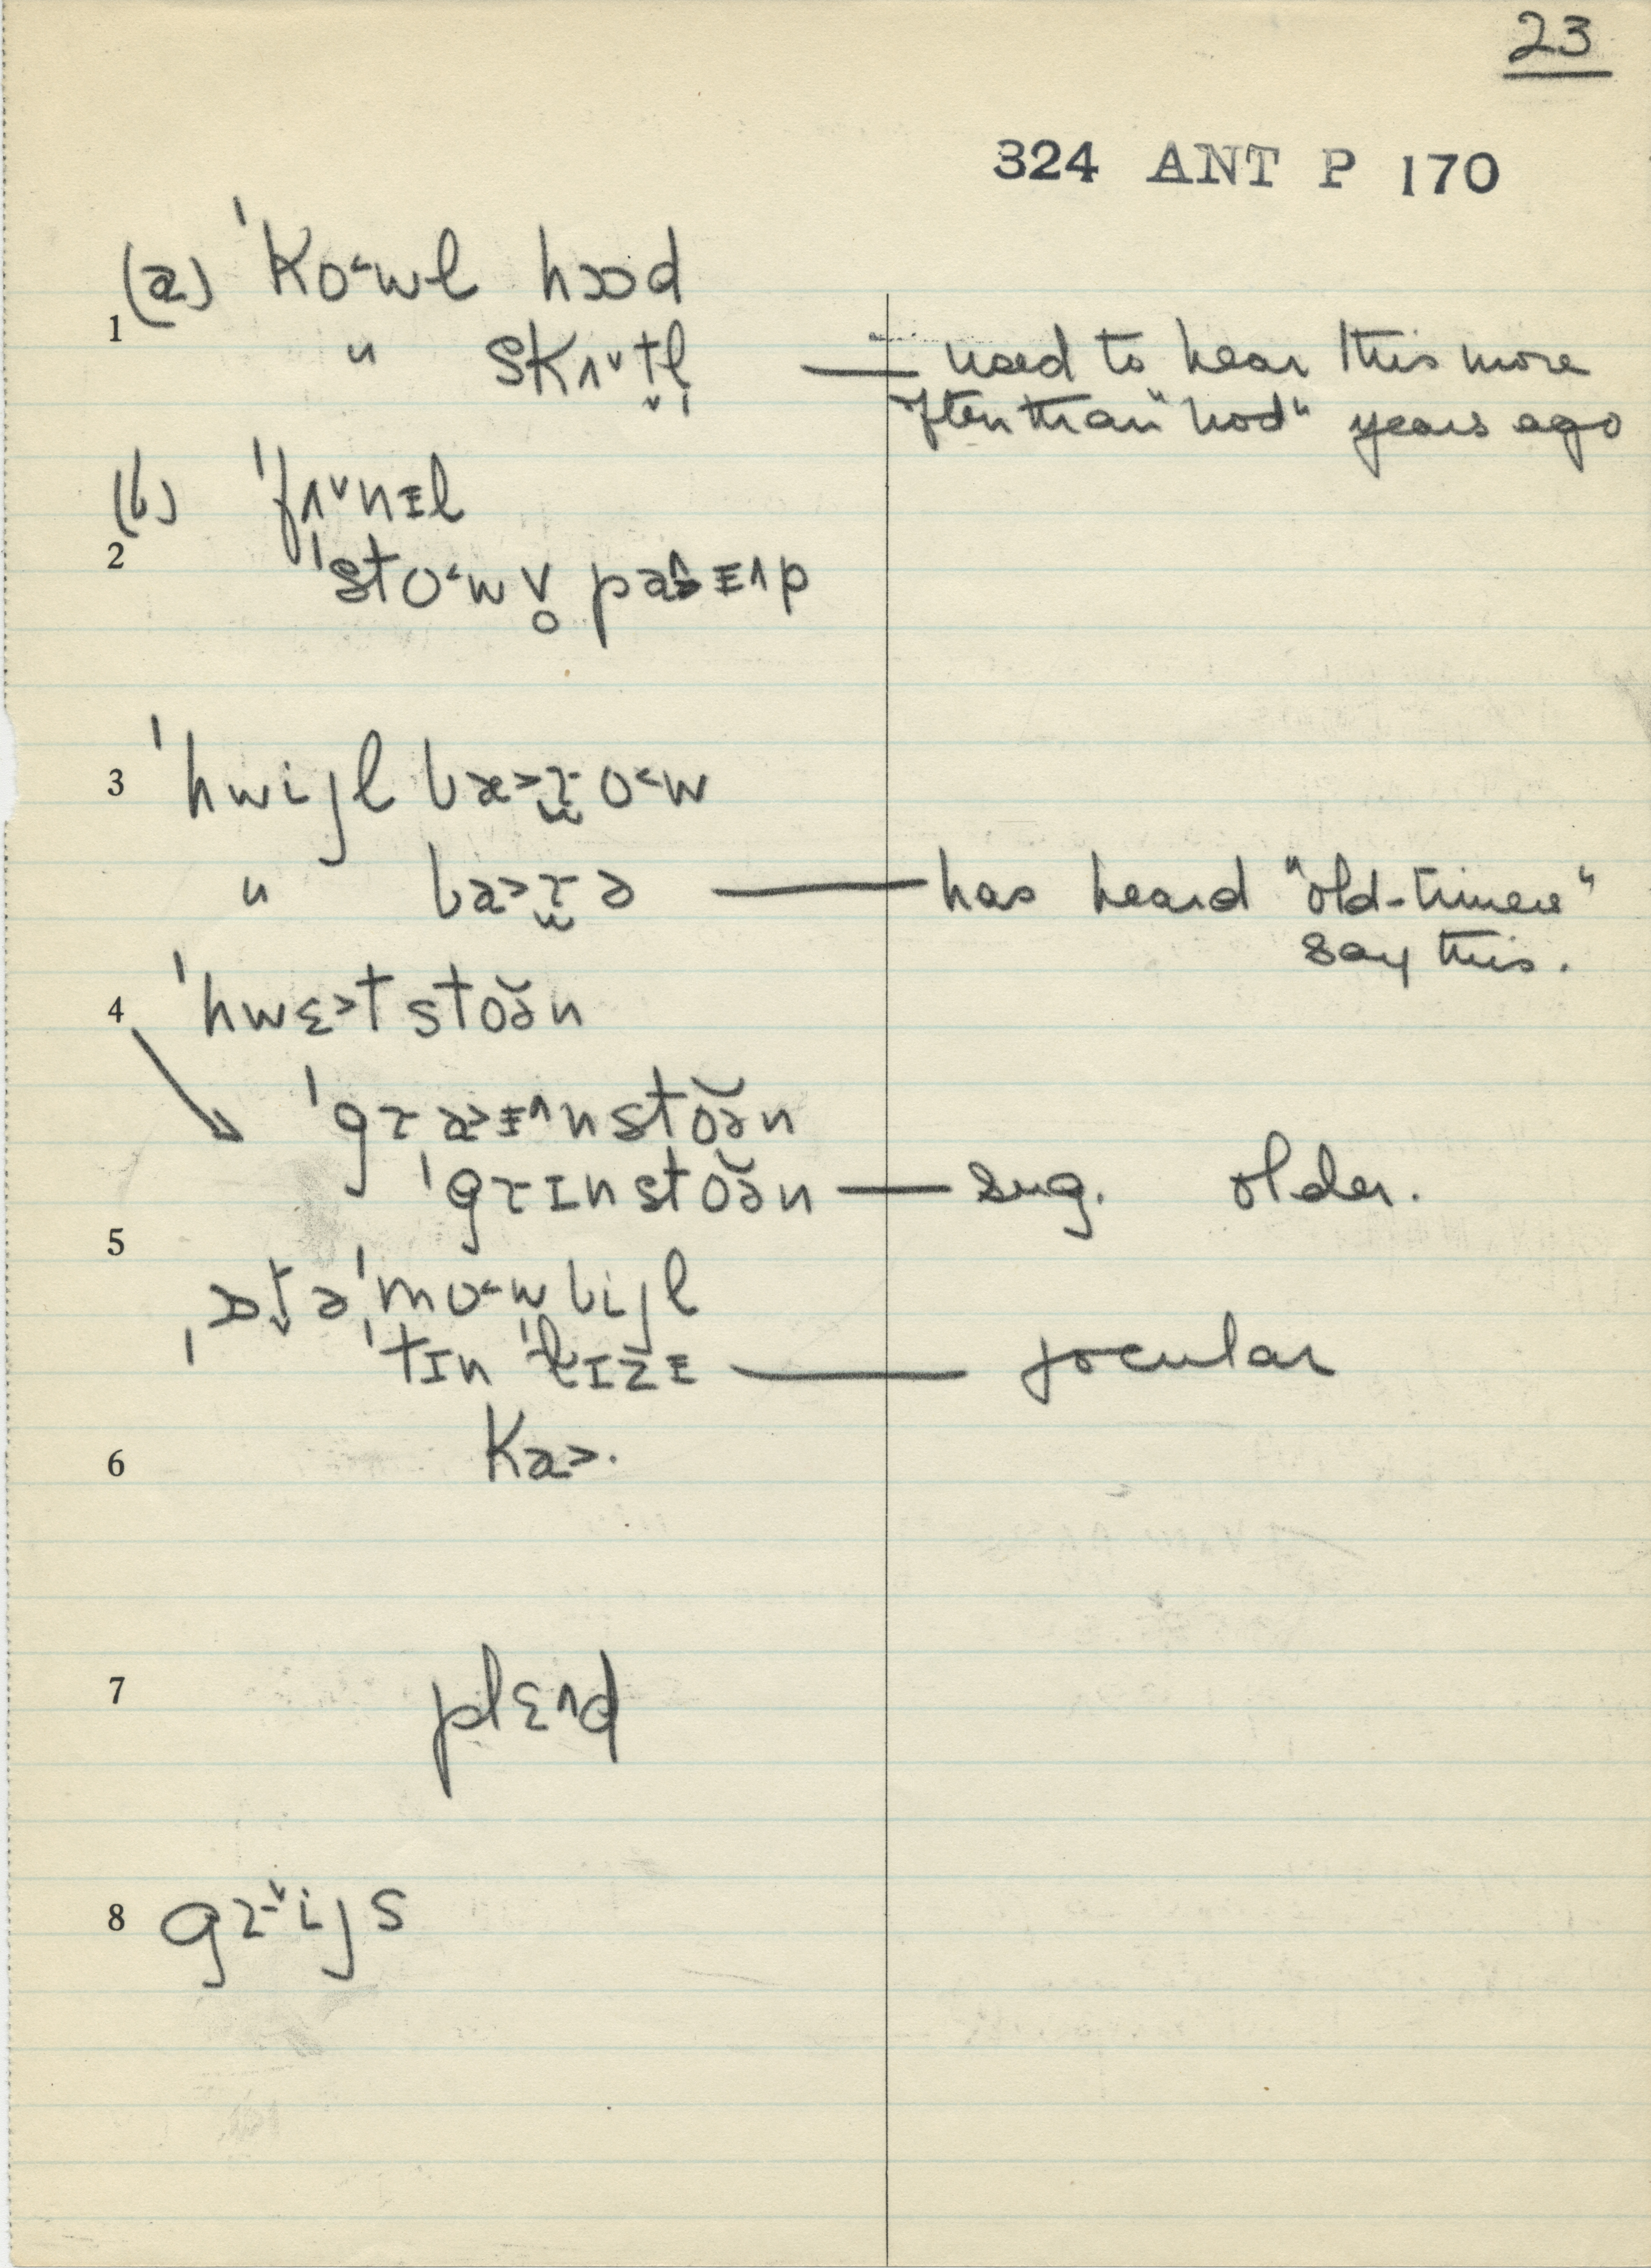 23
324 ANT P 170
(a) ˈko˂wl hɔod
1 " skʌ˅t̬l̩ — used to hear this more
often than "hod" years ago
(b) ˈfʌ˅nᵻl
2 ˈsto˂wv̥ paᵻ˄p
3 ˈhwijl bæ˃ɽo˂w
" ba˃ɽə — has heard "old-timers"
say this.
4 ˈhwɛ˃t stoə̆n
ˈgɽa˃ᵻ˄nstoə̆n
ˈgɽɪnstoə̆n — sug. older.
5
ˌɔt̬əˈmo˂wbijl
ˈtɪn ˈlɪzᵻ — jocular
6 ka˃·
7 plɛ˄d
8 gɽ˅ijs